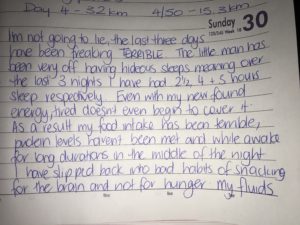 Day 4 - 3.2km 4/50 - 15.3km
Sunday 30
Week 18
I'm not going to lie, the last three days
have been freaking TERRIBLE. The little man has
been very off having hideous sleeps meaning over
the last 3 nights I have had 2½, 4 + 5 hours
sleep respectively. Even with my new found
energy, tired doesn't even begin to cover it.
As a result my food intake has been terrible,
protein levels haven't been met and while awake
for long durations in the middle of the night
I have slipped back into bad habits of snacking
for the brain and not for hunger. My fluids